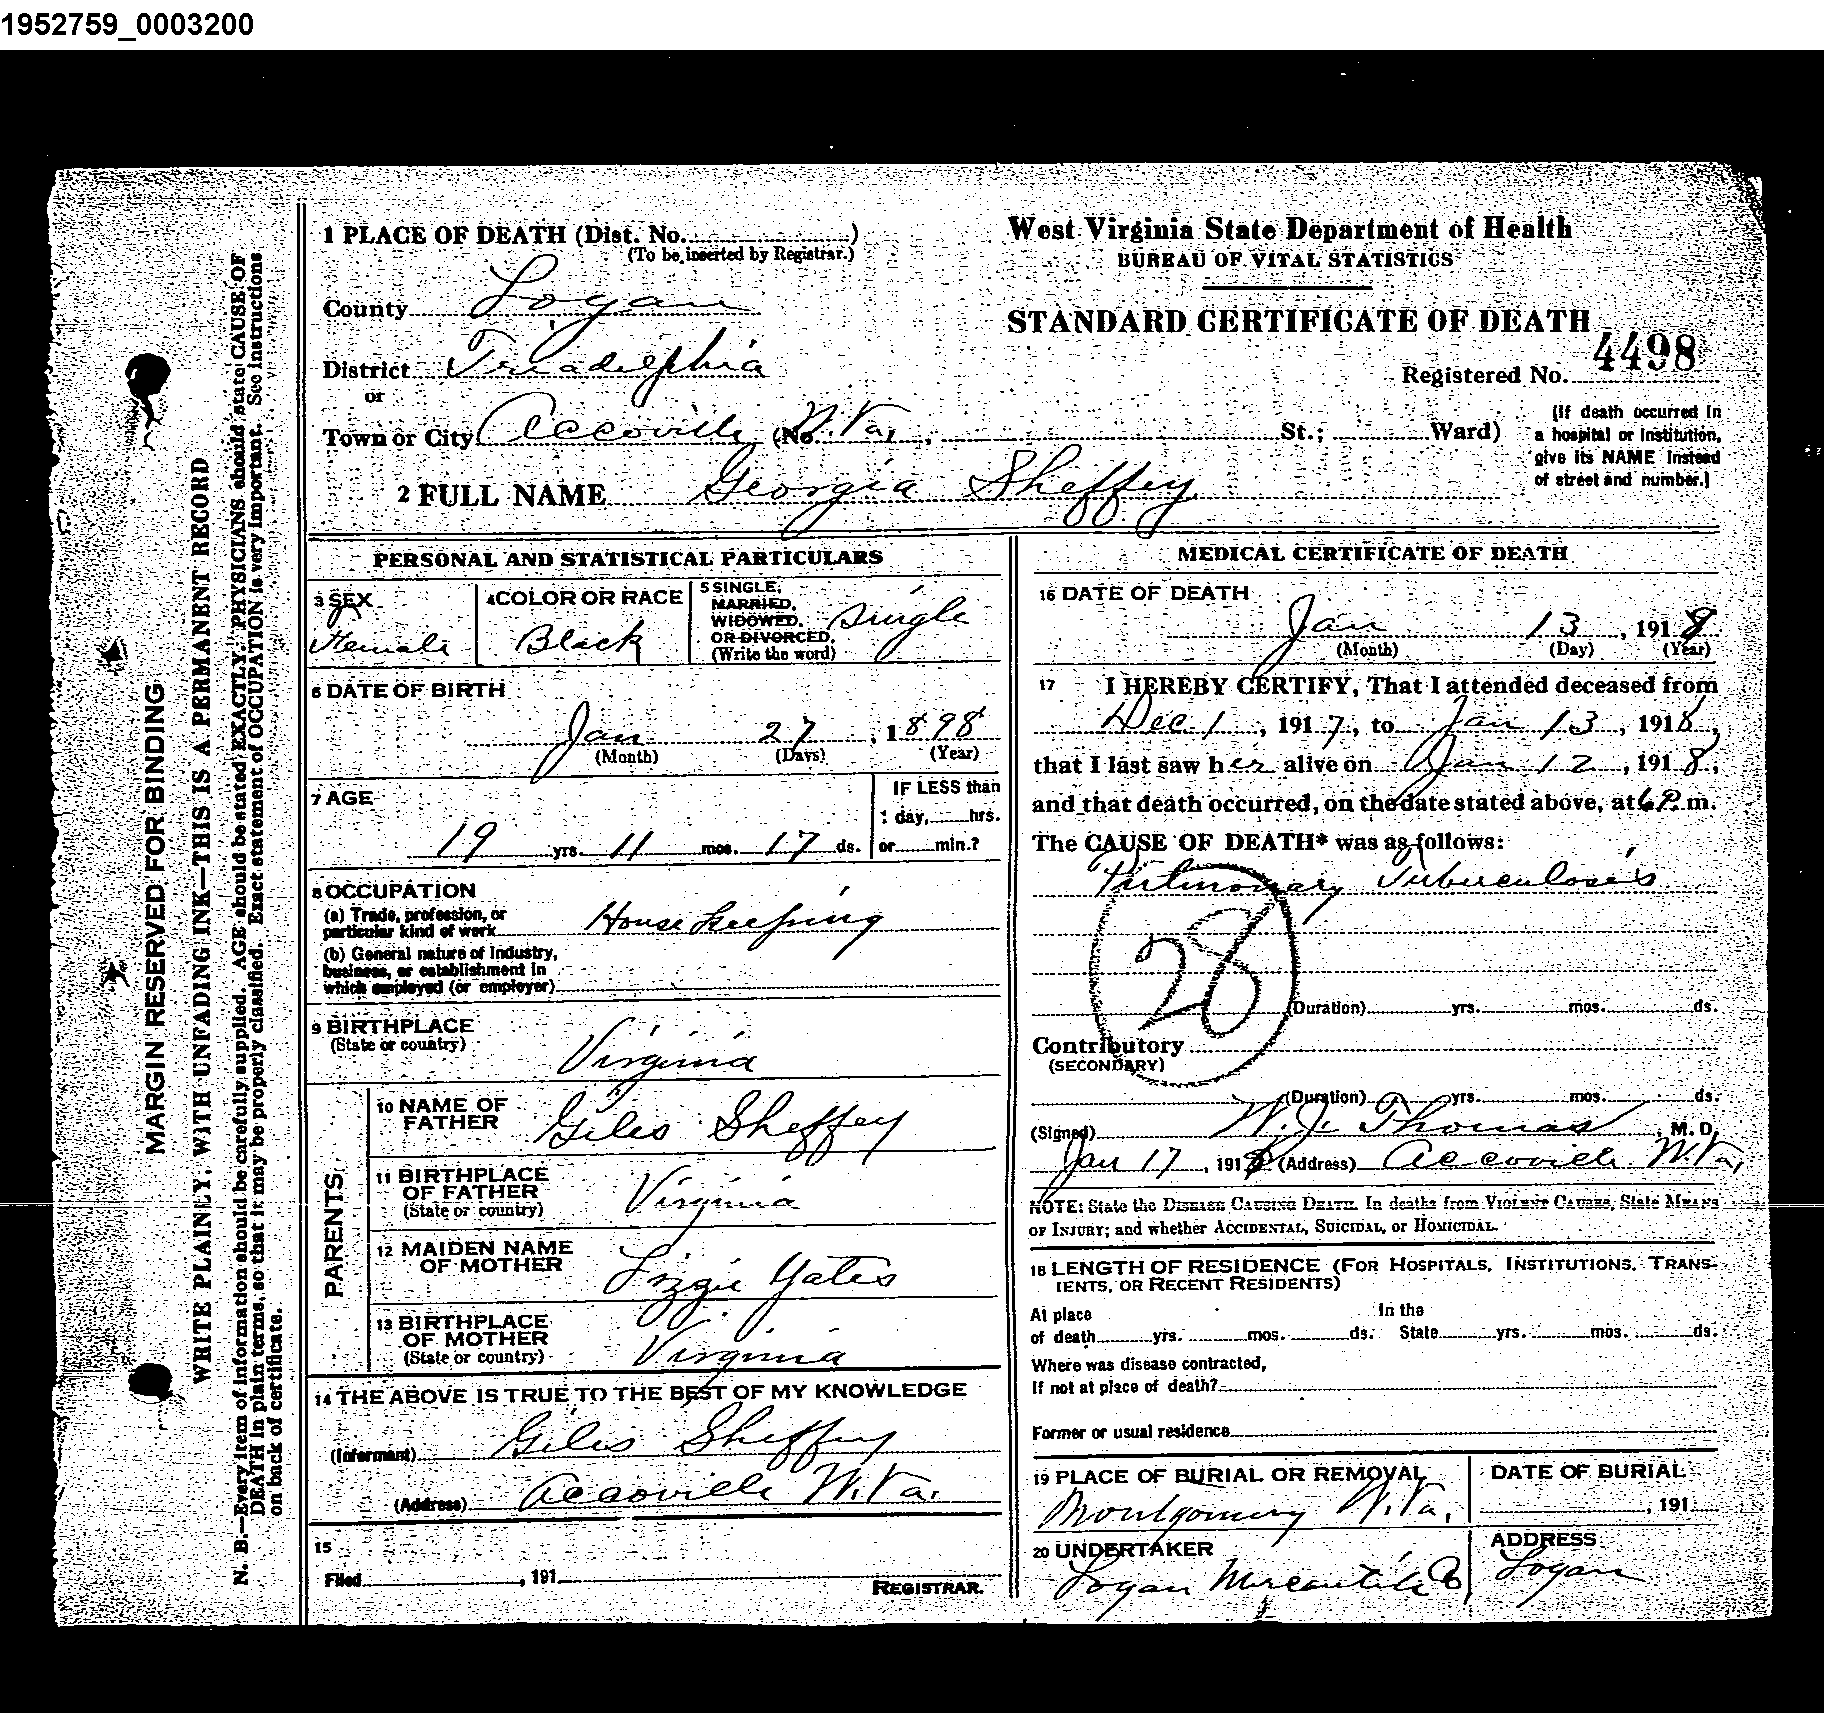 1952759_0003200
MARGIN RESERVED FOR BINDING
WRITE PLAINLY, WITH UNFADING INK—THIS IS A PERMANENT RECORD
N. B.—Every item of information should be carefully supplied. AGE should be stated EXACTLY. PHYSICIANS should state CAUSE OF
DEATH in plain terms, so that it may be properly classified. Exact statement of OCCUPATION is very important. See instructions
on back of certificate.
1 PLACE OF DEATH (Dist. No. )
(To be inserted by Registrar.)
County Logan
District Triadelphia
or
Town or City Accoville (No. W. Va, , St.; Ward)
West Virginia State Department of Health
BUREAU OF VITAL STATISTICS
STANDARD CERTIFICATE OF DEATH
Registered No. 4498
(If death occurred in
a hospital or institution,
give its NAME instead
of street and number.)
2 FULL NAME Georgia Sheffey
PERSONAL AND STATISTICAL PARTICULARS
3 SEX
Female
4 COLOR OR RACE
Black
5 SINGLE,
MARRIED,
WIDOWED,
OR DIVORCED,
(Write the word)
Single
6 DATE OF BIRTH
Jan 27, 1898
(Month) (Days) (Year)
7 AGE
19 yrs. 11 mos. 17 ds.
IF LESS than
1 day, hrs.
or min.?
8 OCCUPATION
(a) Trade, profession, or
particular kind of work House keeping
(b) General nature of industry,
business, or establishment in
which employed (or employer)
9 BIRTHPLACE
(State or country)
Virginia
PARENTS
10 NAME OF
FATHER Giles Sheffey
11 BIRTHPLACE
OF FATHER
(State or country) Virginia
12 MAIDEN NAME
OF MOTHER Lizzie Yates
13 BIRTHPLACE
OF MOTHER
(State or country) Virginia
14 THE ABOVE IS TRUE TO THE BEST OF MY KNOWLEDGE
(Informant) Giles Sheffey
(Address) Accoville W. Va.
15
Filed , 191 REGISTRAR.
MEDICAL CERTIFICATE OF DEATH
16 DATE OF DEATH
Jan 13, 1918
(Month) (Day) (Year)
17 I HEREBY CERTIFY, That I attended deceased from
Dec. 1, 1917, to Jan 13, 1918,
that I last saw her alive on Jan 12, 1918,
and that death occurred, on the date stated above, at 6 P. m.
The CAUSE OF DEATH* was as follows:
Pulmonary Tuberculosis
28
(Duration) yrs. mos. ds.
Contributory
(SECONDARY)
(Duration) yrs. mos. ds.
(Signed) W. J. Thomas, M. D.
Jan 17, 1918 (Address) Accoville W. Va,
NOTE: State the DISEASE CAUSING DEATH. In deaths from VIOLENT CAUSES, State MEANS
OF INJURY; and whether ACCIDENTAL, SUICIDAL, or HOMICIDAL.
18 LENGTH OF RESIDENCE (FOR HOSPITALS, INSTITUTIONS, TRANS-
IENTS, OR RECENT RESIDENTS)
At place In the
of death yrs. mos. ds. State yrs. mos. ds.
Where was disease contracted,
If not at place of death?
Former or usual residence
19 PLACE OF BURIAL OR REMOVAL
Montgomery W. Va,
DATE OF BURIAL
, 191
20 UNDERTAKER
Logan Mercantile Co
ADDRESS
Logan